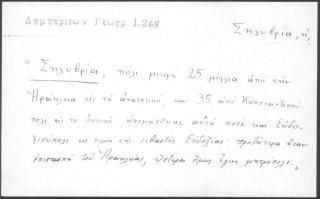 Δημητριέων Γεωγρ 1.268
Σηλυβρία, ἡ,
"Σηλυβρία, πόλι μικρή 25 μίλλια ἀπό τήν
Ἡράκλεια εἰς τό ἀνατολικό, καί 35 ἀπό Κωνσταντινού-
πολι εἰς τό δυτικό· ὠνομάσθηκε αὐτή ποτέ καί Εὐδο-
ξιούπολι εἰς τιμή τῆς σεβαστῆς Εὐδοξίας· προτήτερα ἦταν
ἐπισκοπή τοῦ Ἡρακλείας, ὕστερα ὅμως ἔγινε μητρόπολι."